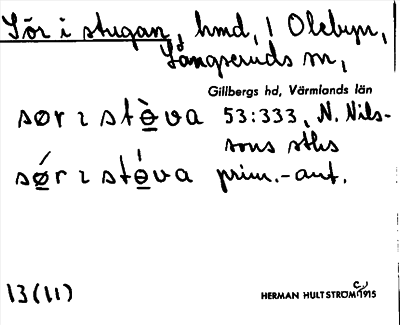 Sör i stugan, hmd, 1 Olebyn,
Långseruds sn,
Gillbergs hd, Värmlands län
sør ɩ stə̀va 53:333, N. Nils-
sons sths
sǿr ɩ stə́va prim.-ant.
13(11)
HERMAN HULTSTRÖM 1915